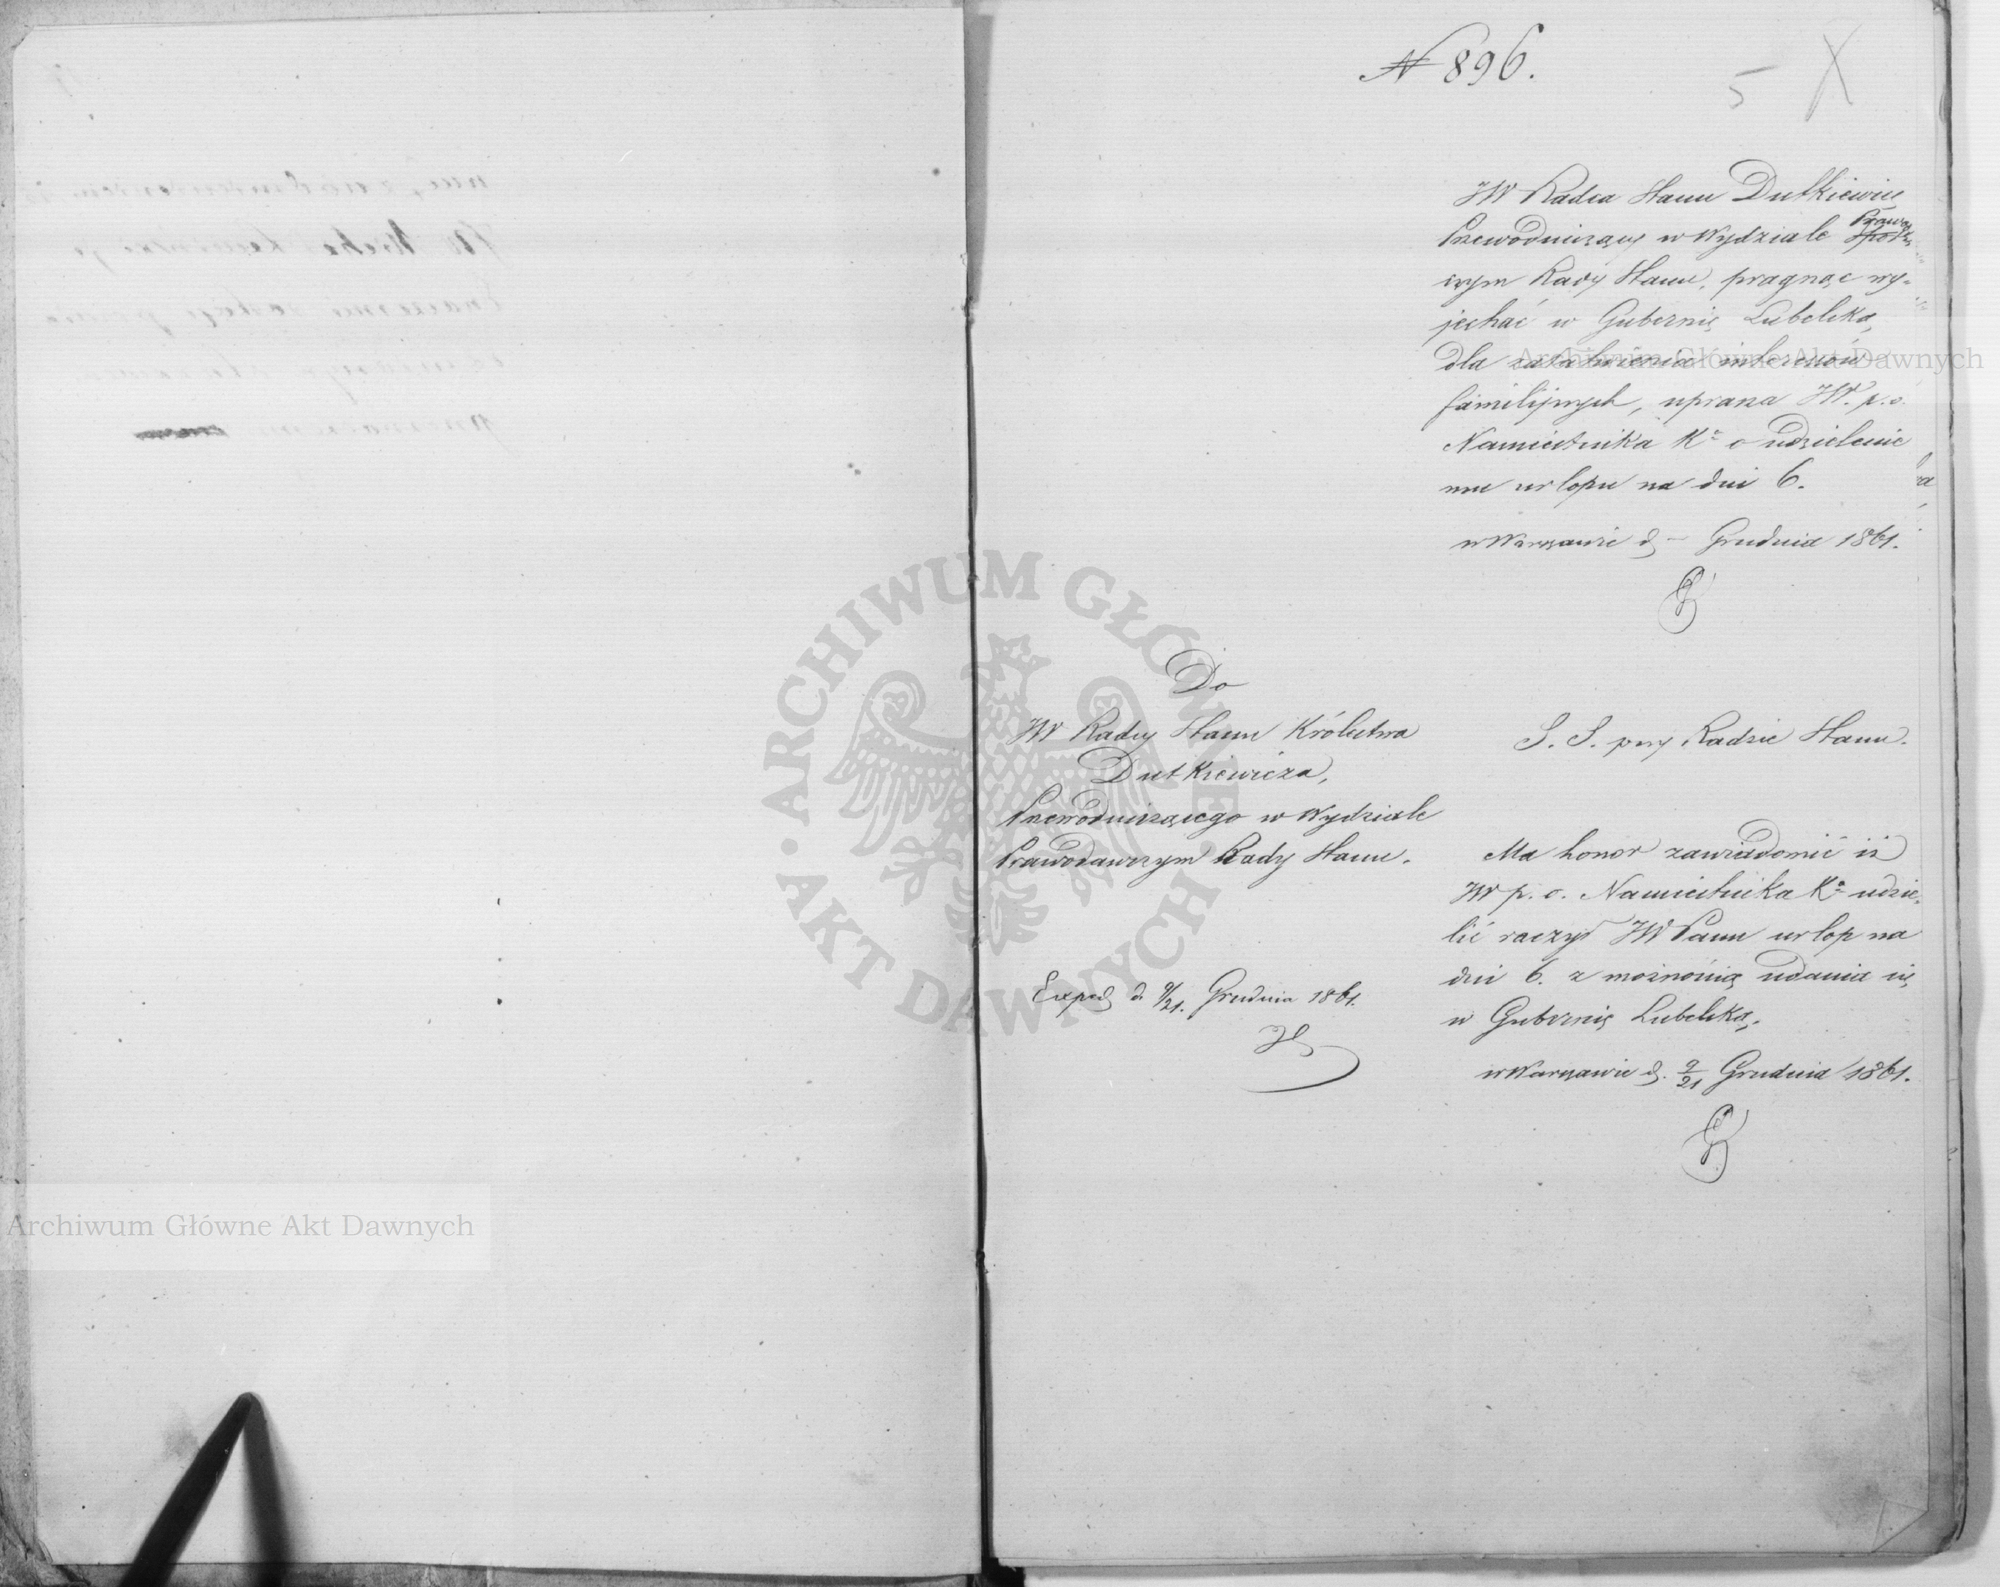 N 896.
5
JW Radca Stanu Dutkiewicz
Przewodniczący w Wydziale Prawodaw
czym Rady Stanu, pragnąc wy-
jechać w Gubernię Lubelską,
dla załatwienia interesów
familijnych, uprasza JW. p. o.
Namiestnika Kr o udzielenie
mu urlopu na dni 6.
w Warszawie d. – Grudnia 1861.
Do
JW Radcy Stanu Królestwa
Dutkiewicza,
Przewodniczącego w Wydziale
Prawodawczym Rady Stanu.
Exped. d. 9/21. Grudnia 1861.
S. S. przy Radzie Stanu.
Ma honor zawiadomić iż
JW p. o. Namiestnika Ka udzie-
lić raczył JW Panu urlop na
dni 6. z możnością udania się
w Gubernię Lubelską.
w Warszawie d. 9/21 Grudnia 1861.
ARCHIWUM GŁÓWNE · AKT DAWNYCH ·
Archiwum Główne Akt Dawnych
Archiwum Główne Akt Dawnych